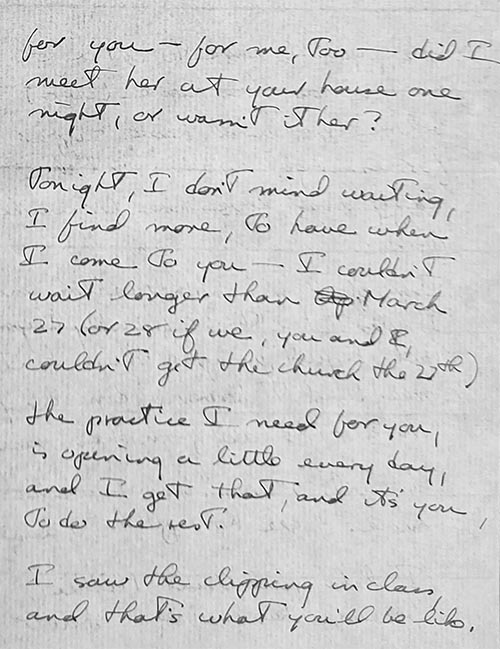 for you — for me, too — did I
meet her at your house one
night, or wasn't it her?
Tonight, I don't mind waiting,
I find more, to have when
I come to you — I couldn't
wait longer than March
27 (or 28 if we, you and I,
couldn't get the church the 27th)
the practice I need for you,
is opening a little every day,
and I get that, and its' you,
to do the rest.
I saw the clipping in class,
and that's what you'll be like.